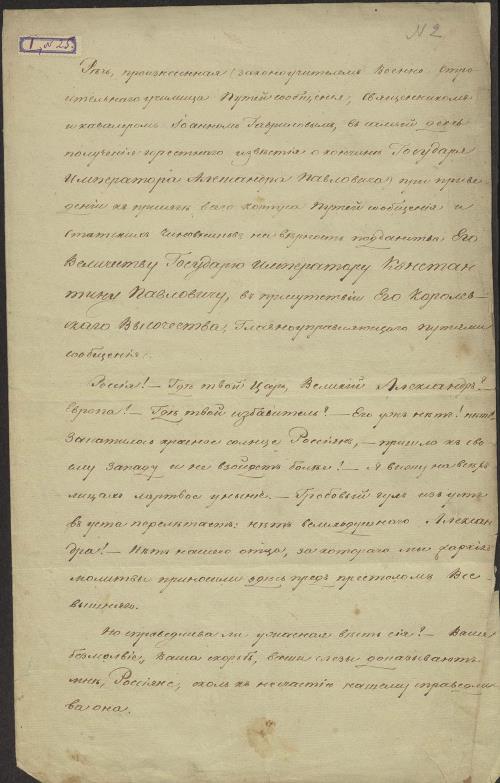 N 2.
I, N 25.
Рѣчь, произнесенная законоучителемъ Военно Стро-
ительнаго училища Путей сообщенія, священникомъ
и кавалеромъ Іоанномъ въ самый день
полученія горестнаго извѣстія о кончинѣ Государя
Императора Александра Павловича, при приве-
деніи къ присягѣ всего корпуса Путей сообщенія и
статскихъ чиновниковъ на вѣрность подданства Его
Величеству Государю Императору Констан
тину Павловичу, въ присутствіи Его Королев-
скаго Высочества, Главноуправляющаго путями
сообщенія.
Россія! — Гдѣ твой Царь, Великій Александръ? —
Европа! — Гдѣ твой избавитель? — Его ужъ нѣтъ! нѣтъ!
Закатилось красное солнце Россіянъ, — пришло къ сво
ему западу и не взойдетъ болѣе! — Я вижу на всѣхъ
лицахъ мертвое уныніе. — Гробовый гулъ изъ устъ
въ уста перелетаетъ: нѣтъ великодушнаго Алексан
дра! — Нѣтъ нашего отца, за котораго мы жаркія
молитвы приносили здѣсь предъ престоломъ Все-
вышняго.
Но справедлива ли ужасная вѣсть сія? — Ваше
безмолвіе, Ваша скорбь, ваши слезы доказываютъ
мнѣ, Россіяне, сколь къ несчастію нашему справедли-
ва она.